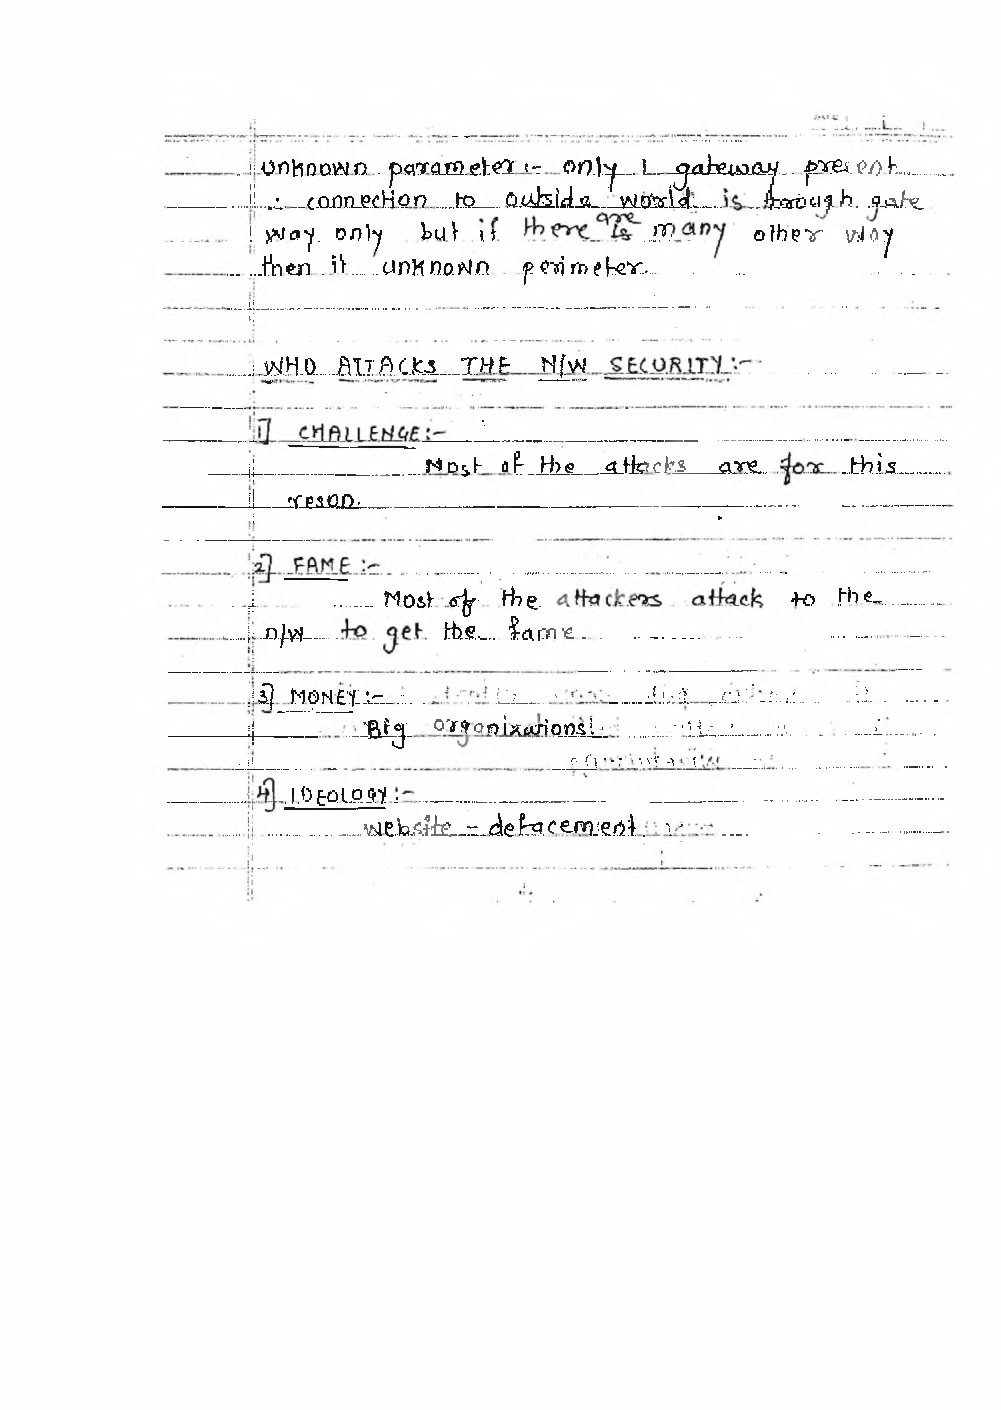 Unknown parameter :- only 1 gateway present
∴ connection to outside world is through gate
way only but if there are many other way
then it unknown perimeter.
WHO ATTACKS THE N/W SECURITY :-
1] CHALLENGE :-
Most of the attacks are for this
reson.
2] FAME :-
Most of the attackers attack to the
n/w to get the fame
3] MONEY :-
Big organizations!
4] IDEOLOGY :-
website - defacement